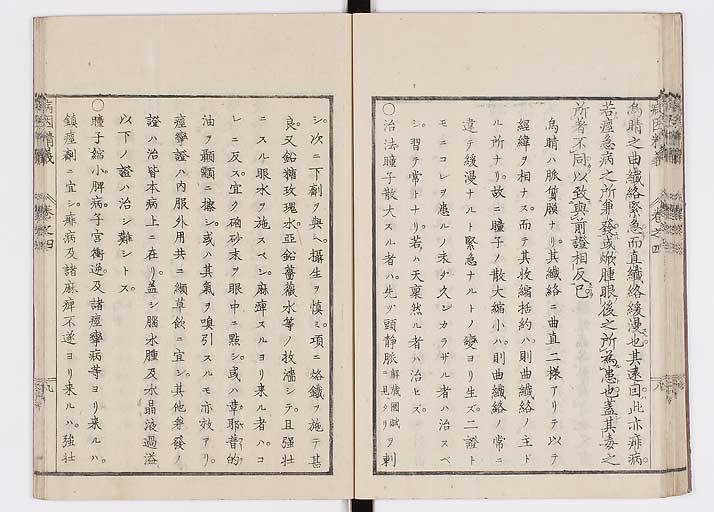 烏睛之曲纖絡緊急而直纖絡緩漫也。其遠因。此亦痱病。
若痙急病之所兼發。或焮腫眼後之所為患也。蓋其毒之
所著不同。以致與前證相反已。
烏睛ハ脈質膜ナリ。其纖絡ニ曲直二樣アリテ以テ
經緯ヲ相ナス。而テ其收縮括約ハ。則曲纖絡ノ主ト
ル所ナリ。故ニ瞳子ノ散大縮小ハ。則曲纖絡ノ常ニ
違テ緩漫ナルト緊急ナルトノ變ヨリ生ズ。二證ト
モニコレヲ患ルノ未ダ久シカラザル者ハ治スベ
シ。習テ常トナリ。若ハ天稟然ル者ハ治ヒズ。
○治法瞳子散大スル者ハ。先ヅ頸靜脈解藏圖賦ニ見タリヲ刺
シ。次ニ下劑ヲ與ヘ。攝生ヲ慎ミ。項ニ烙鐵ヲ施テ甚
良。又鉛糖玫瑰水。亞鉛薔薇水等ノ收濇シテ。且強壯
ニスル眼水ヲ施スベシ。麻痺スルヨリ来ル者ハ。コ
レニ反ス。宜ク硇砂末ヲ眼中ニ點シ。或ハ葷耶普的
油ヲ顳顬ニ擦シ。或ハ其氣ヲ嗅引スルモ亦效アリ。
痙攣證ハ内服外用共ニ纈草飲ニ宜シ。其他兼發ノ
證ハ治皆本病上ニ在リ。盖シ腦水腫及水晶液過溢
以下ノ證ハ治シ難シトス。
○瞳子縮小脾病。子宮衝逆。及諸痙攣病等ヨリ来ルハ。
鎮痙劑ニ宜シ。痱病及諸麻痺不遂ヨリ来ルハ。強壯
病因精義
卷之四
九